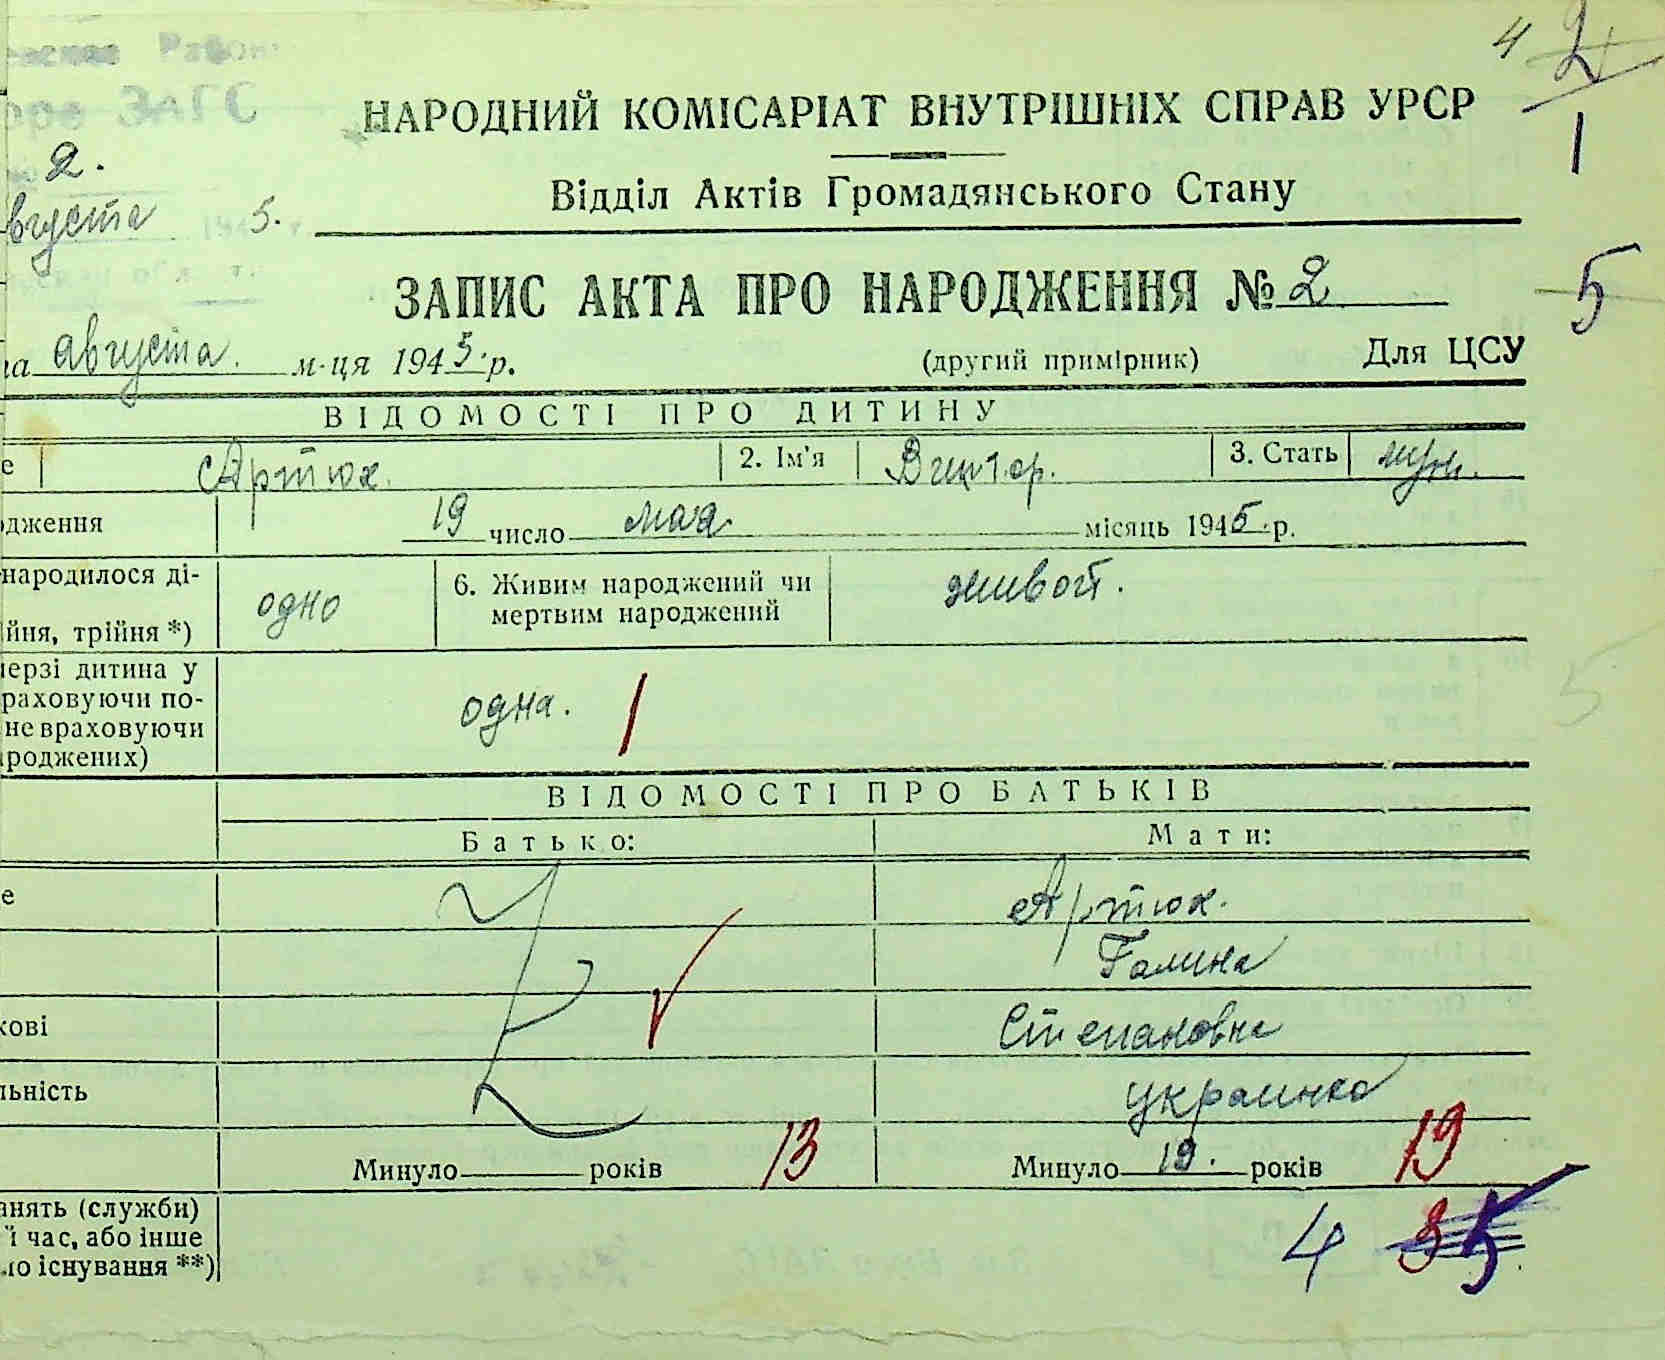 4 2
1
5
Район
ЗАГС
2.
августа 1945. г.
НАРОДНИЙ КОМІСАРІАТ ВНУТРІШНІХ СПРАВ УРСР
Відділ Актів Громадянського Стану
ЗАПИС АКТА ПРО НАРОДЖЕННЯ № 2
на августа. м-ця 1945.р. (другий примірник) Для ЦСУ
ВІДОМОСТІ ПРО ДИТИНУ
е Артюх. 2. Ім'я Виктор. 3. Стать муж.
одження 19 число мая місяць 1945.р.
народилося ді-
йня, трійня *) одно 6. Живим народжений чи мертвим народжений живой.
черзі дитина у
раховуючи по-
не враховуючи
роджених) одна. 1
5
ВІДОМОСТІ ПРО БАТЬКІВ
Батько: Мати:
е Артюх.
Галина
кові Степановна
льність украинка
Минуло років 13 Минуло 19. років 19
анять (служби)
й час, або інше
ло існування **) 4 3 5